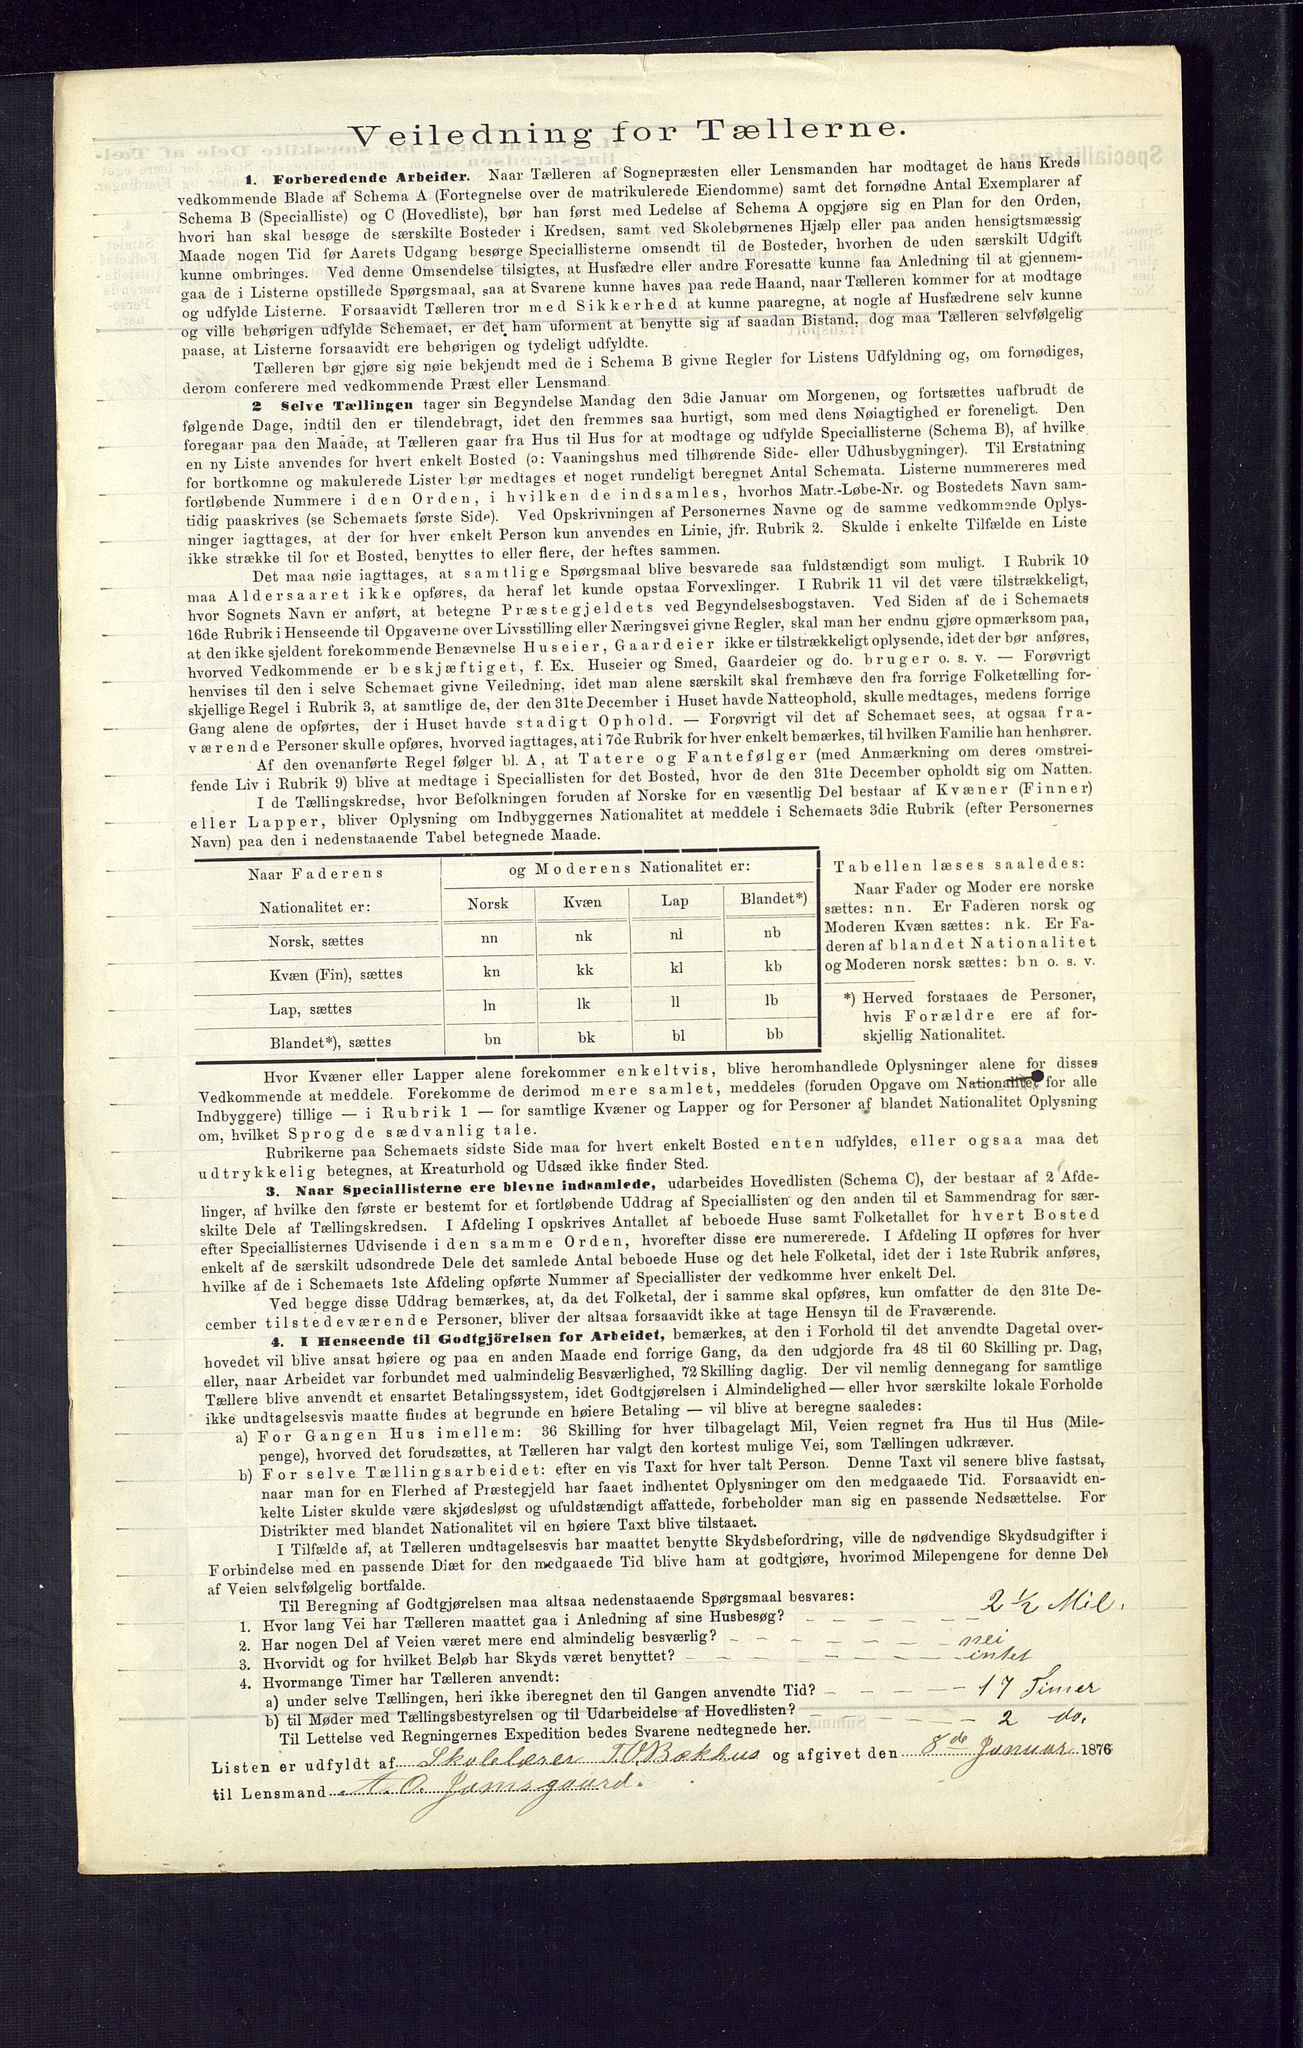 Veiledning for Tællerne.
1. Forberedende Arbeider. Naar Tælleren af Sognepræsten eller Lensmanden har modtaget de hans Kreds
vedkommende Blade af Schema A (Fortegnelse over de matrikulerede Eiendomme) samt det fornødne Antal Exemplarer af
Schema B (Specialliste) og C (Hovedliste), bør han først med Ledelse af Schema A opgjøre sig en Plan for den Orden,
hvori han skal besøge de særskilte Bosteder i Kredsen, samt ved Skolebørnenes Hjælp eller paa anden hensigtsmæssig
Maade nogen Tid før Aarets Udgang besørge Speciallisterne omsendt til de Bosteder, hvorhen de uden særskilt Udgift
kunne ombringes. Ved denne Omsendelse tilsigtes, at Husfædre eller andre Foresatte kunne faa Anledning til at gjennem-
gaa de i Listerne opstillede Spørgsmaal, saa at Svarene kunne haves paa rede Haand, naar Tælleren kommer for at modtage
og udfylde Listerne. Forsaavidt Tælleren tror med Sikkerhed at kunne paaregne, at nogle af Husfædrene selv kunne
og ville behørigen udfylde Schemaet, er det ham uforment at benytte sig af saadan Bistand, dog maa Tælleren selvfølgelig
paase, at Listerne forsaavidt ere behørigen og tydeligt udfyldte.
Tælleren bør gjøre sig nøie bekjendt med de i Schema B givne Regler for Listens Udfyldning og, om fornødiges,
derom conferere med vedkommende Præst eller Lensmand
2 Selve Tællingen tager sin Begyndelse Mandag den 3die Januar om Morgenen, og fortsættes uafbrudt de
følgende Dage, indtil den er tilendebragt, idet den fremmes saa hurtigt, som med dens Nøiagtighed er foreneligt. Den
foregaar paa den Maade, at Tælleren gaar fra Hus til Hus for at modtage og udfylde Speciallisterne (Schema B), af hvilke
en ny Liste anvendes for hvert enkelt Bosted (ɔ: Vaaningshus med tilhørende Side- eller Udhusbygninger). Til Erstatning
for bortkomne og makulerede Lister bør medtages et noget rundeligt beregnet Antal Schemata. Listerne nummereres med
fortløbende Nummere i den Orden, i hvilken de indsamles, hvorhos Matr.-Løbe-Nr. og Bostedets Navn sam-
tidig paaskrives (se Schemaets første Side). Ved Opskrivningen af Personernes Navne og de samme vedkommende Oplys-
ninger iagttages, at der for hver enkelt Person kun anvendes en Linie, jfr. Rubrik 2. Skulde i enkelte Tilfælde en Liste
ikke strække til for et Bosted, benyttes to eller flere, der heftes sammen.
Det maa nøie iagttages, at samtlige Spørgsmaal blive besvarede saa fuldstændigt som muligt. I Rubrik 10
maa Aldersaaret ikke opføres, da heraf let kunde opstaa Forvexlinger. I Rubrik 11 vil det være tilstrækkeligt,
hvor Sognets Navn er anført, at betegne Præstegjeldets ved Begyndelsesbogstaven. Ved Siden af de i Schemaets
16de Rubrik i Henseende til Opgaverne over Livsstilling eller Næringsvei givne Regler, skal man her endnu gjøre opmærksom paa,
at den ikke sjeldent forekommende Benævnelse Huseier, Gaardeier ikke er tilstrækkeligt oplysende, idet der bør anføres,
hvorved Vedkommende er beskjæftiget, f. Ex. Huseier og Smed, Gaardeier og do. bruger o. s. v. — Forøvrigt
henvises til den i selve Schemaet givne Veiledning, idet man alene særskilt skal fremhæve den fra forrige Folketælling for-
skjellige Regel i Rubrik 3, at samtlige de, der den 31te December i Huset havde Natteophold, skulle medtages, medens forrige
Gang alene de opførtes, der i Huset havde stadigt Ophold. — Forøvrigt vil det af Schemaet sees, at ogsaa fra-
værende Personer skulle opføres, hvorved iagttages, at i 7de Rubrik for hver enkelt bemærkes, til hvilken Familie han henhører.
Af den ovenanførte Regel følger bl. A, at Tatere og Fantefølger (med Anmærkning om deres omstrei-
fende Liv i Rubrik 9) blive at medtage i Speciallisten for det Bosted, hvor de den 31te December opholdt sig om Natten.
I de Tællingskredse, hvor Befolkningen foruden af Norske for en væsentlig Del bestaar af Kvæner (Finner)
eller Lapper, bliver Oplysning om Indbyggernes Nationalitet at meddele i Schemaets 3die Rubrik (efter Personernes
Navn) paa den i nedenstaaende Tabel betegnede Maade.
Naar Faderens Nationalitet er: og Moderens Nationalitet er:
Norsk Kvæn Lap Blandet*)
Norsk, sættes nn nk nl nb
Kvæn (Fin), sættes kn kk kl kb
Lap, sættes ln lk ll lb
Blandet*), sættes bn bk bl bb
Tabellen læses saaledes:
Naar Fader og Moder ere norske
sættes: nn. Er Faderen norsk og
Moderen Kvæn sættes: nk. Er Fa-
deren af blandet Nationalitet
og Moderen norsk sættes: bn o. s. v.
*) Herved forstaaes de Personer,
hvis Forældre ere af for-
skjellig Nationalitet.
Hvor Kvæner eller Lapper alene forekommer enkeltvis, blive heromhandlede Oplysninger alene for disses
Vedkommende at meddele. Forekomme de derimod mere samlet, meddeles (foruden Opgave om Nationalitet for alle
Indbyggere) tillige — i Rubrik 1 — for samtlige Kvæner og Lapper og for Personer af blandet Nationalitet Oplysning
om, hvilket Sprog de sædvanlig tale.
Rubrikerne paa Schemaets sidste Side maa for hvert enkelt Bosted enten udfyldes, eller ogsaa maa det
udtrykkelig betegnes, at Kreaturhold og Udsæd ikke finder Sted.
3. Naar Speciallisterne ere blevne indsamlede, udarbeides Hovedlisten (Schema C), der bestaar af 2 Afde-
linger, af hvilke den første er bestemt for et fortløbende Uddrag af Speciallisten og den anden til et Sammendrag for sær-
skilte Dele af Tællingskredsen. I Afdeling I opskrives Antallet af beboede Huse samt Folketallet for hvert Bosted
efter Speciallisternes Udvisende i den samme Orden, hvorefter disse ere numererede. I Afdeling II opføres for hver
enkelt af de særskilt udsondrede Dele det samlede Antal beboede Huse og det hele Folketal, idet der i 1ste Rubrik anføres,
hvilke af de i Schemaets 1ste Afdeling opførte Nummer af Speciallister der vedkomme hver enkelt Del.
Ved begge disse Uddrag bemærkes, at, da det Folketal, der i samme skal opføres, kun omfatter de den 31te De-
cember tilstedeværende Personer, bliver der altsaa forsaavidt ikke at tage Hensyn til de Fraværende.
4. I Henseende til Godtgjörelsen for Arbeidet, bemærkes, at den i Forhold til det anvendte Dagetal over-
hovedet vil blive ansat høiere og paa en anden Maade end forrige Gang, da den udgjorde fra 48 til 60 Skilling pr. Dag,
eller, naar Arbeidet var forbundet med ualmindelig Besværlighed, 72 Skilling daglig. Der vil nemlig dennegang for samtlige
Tællere blive anvendt et ensartet Betalingssystem, idet Godtgjørelsen i Almindelighed — eller hvor særskilte lokale Forholde
ikke undtagelsesvis maatte findes at begrunde en høiere Betaling — vil blive at beregne saaledes:
a) For Gangen Hus imellem: 36 Skilling for hver tilbagelagt Mil, Veien regnet fra Hus til Hus (Mile-
penge), hvorved det forudsættes, at Tælleren har valgt den kortest mulige Vei, som Tællingen udkræver.
b) For selve Tællingsarbeidet: efter en vis Taxt for hver talt Person. Denne Taxt vil senere blive fastsat,
naar man for en Flerhed af Præstegjeld har faaet indhentet Oplysninger om den medgaaede Tid. Forsaavidt en-
kelte Lister skulde være skjødesløst og ufuldstændigt affattede, forbeholder man sig en passende Nedsættelse. For
Distrikter med blandet Nationalitet vil en høiere Taxt blive tilstaaet.
I Tilfælde af, at Tælleren undtagelsesvis har maattet benytte Skydsbefordring, ville de nødvendige Skydsudgifter i
Forbindelse med en passende Diæt for den medgaaede Tid blive ham at godtgjøre, hvorimod Milepengene for denne Del
af Veien selvfølgelig bortfalde.
Til Beregning af Godtgjørelsen maa altsaa nedenstaaende Spørgsmaal besvares:
1. Hvor lang Vei har Tælleren maattet gaa i Anledning af sine Husbesøg? 2 ½ Mil.
2. Har nogen Del af Veien været mere end almindelig besværlig? nei
3. Hvorvidt og for hvilket Beløb har Skyds været benyttet? intet
4. Hvormange Timer har Tælleren anvendt:
a) under selve Tællingen, heri ikke iberegnet den til Gangen anvendte Tid? 17 Timer
b) til Møder med Tællingsbestyrelsen og til Udarbeidelse af Hovedlisten? 2 do.
Til Lettelse ved Regningernes Expedition bedes Svarene nedtegnede her.
Listen er udfyldt af Skolelærer T. O. Bækhus og afgivet den 8de Januar 1876
til Lensmand A. O. Jamsgaard.